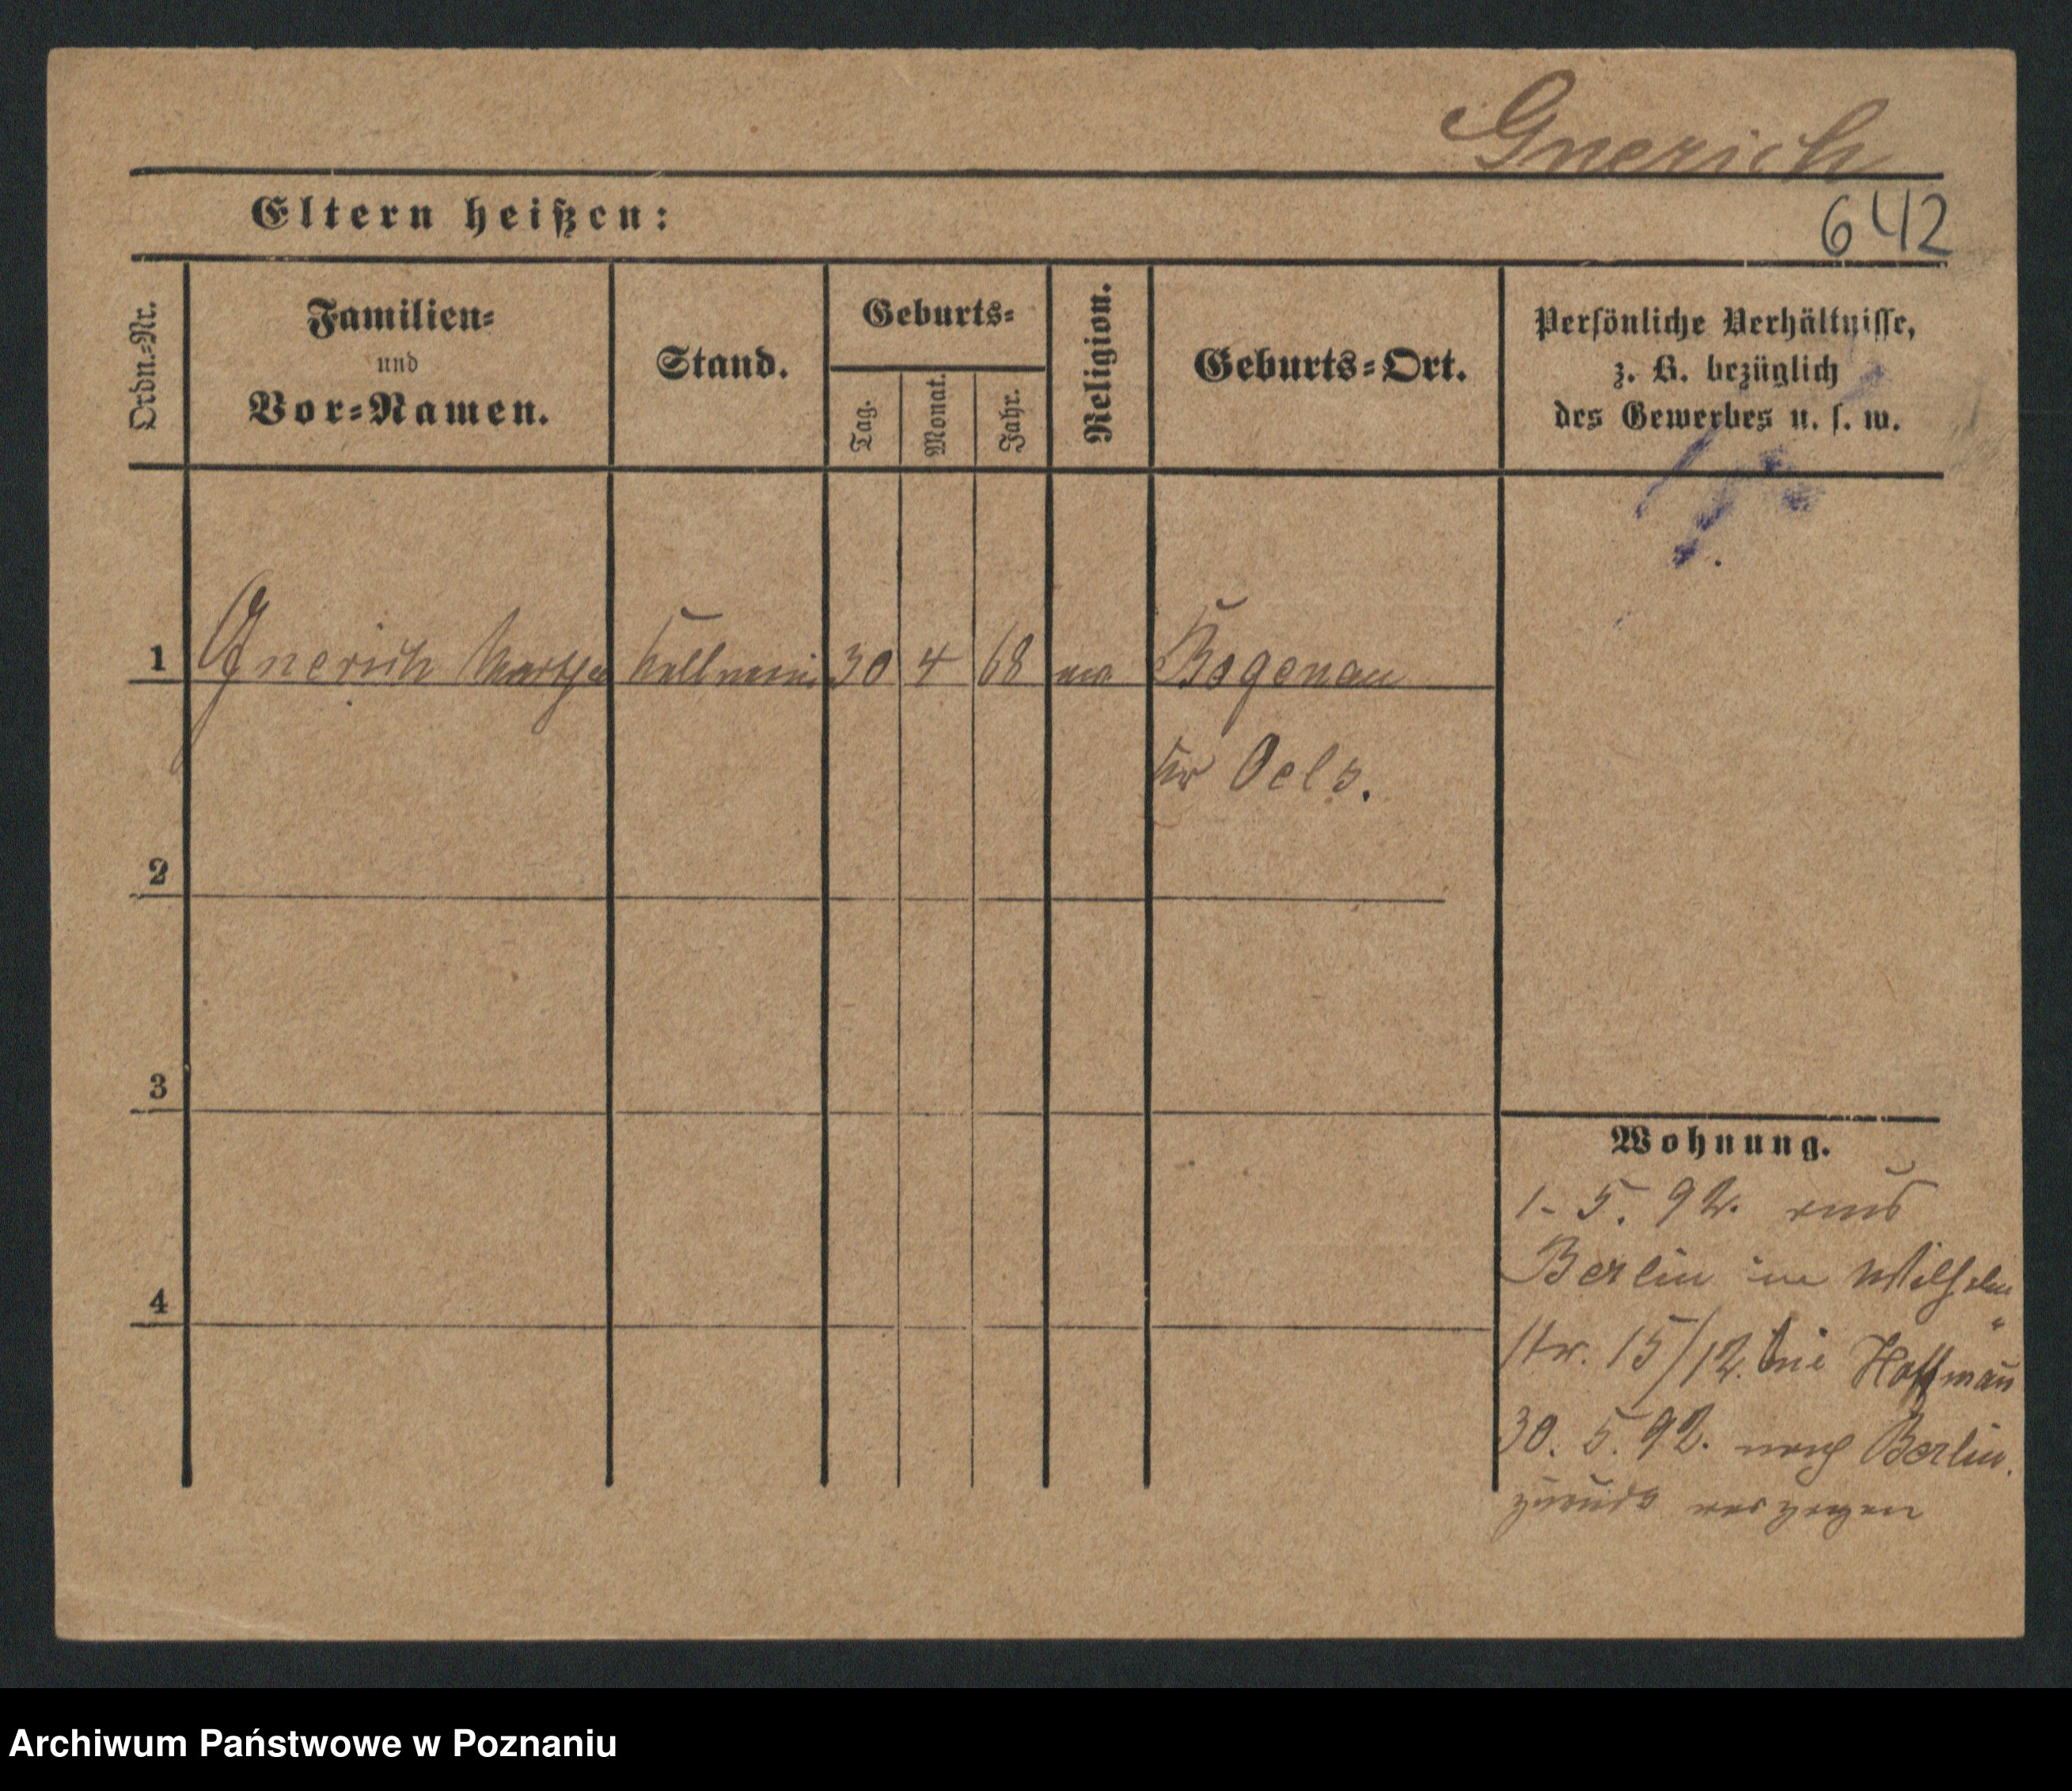 Gnerich
Eltern heißen:
642
Ordn.-Nr.
Familien-
und
Vor-Namen.
Stand.
Geburts-
Tag.
Monat.
Jahr.
Religion.
Geburts-Ort.
Persönliche Verhältnisse,
z. B. bezüglich
des Gewerbes u. s. w.
1 Gnerich Martha 30 4 68 Bogenau
Kr Oels.
2
3
4
Wohnung.
1. 5. 92. aus
Berlin in Wilhelm
str. 15/12. bei Hoffmañ
30. 5. 92. nach Berlin.
zurück verzogen
Archiwum Państwowe w Poznaniu